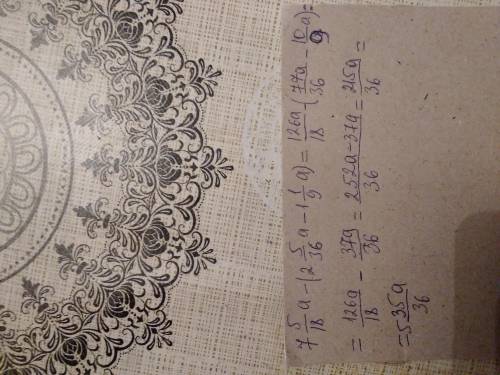 7 5/18 a - (2 5/36 a - 1 1/9 a) = 126a/18 - (77a/36 - 10a/9) =
= 126a/18 - 37a/36 = 252a-37a/36 = 215a/36 =
= 5 35a/36